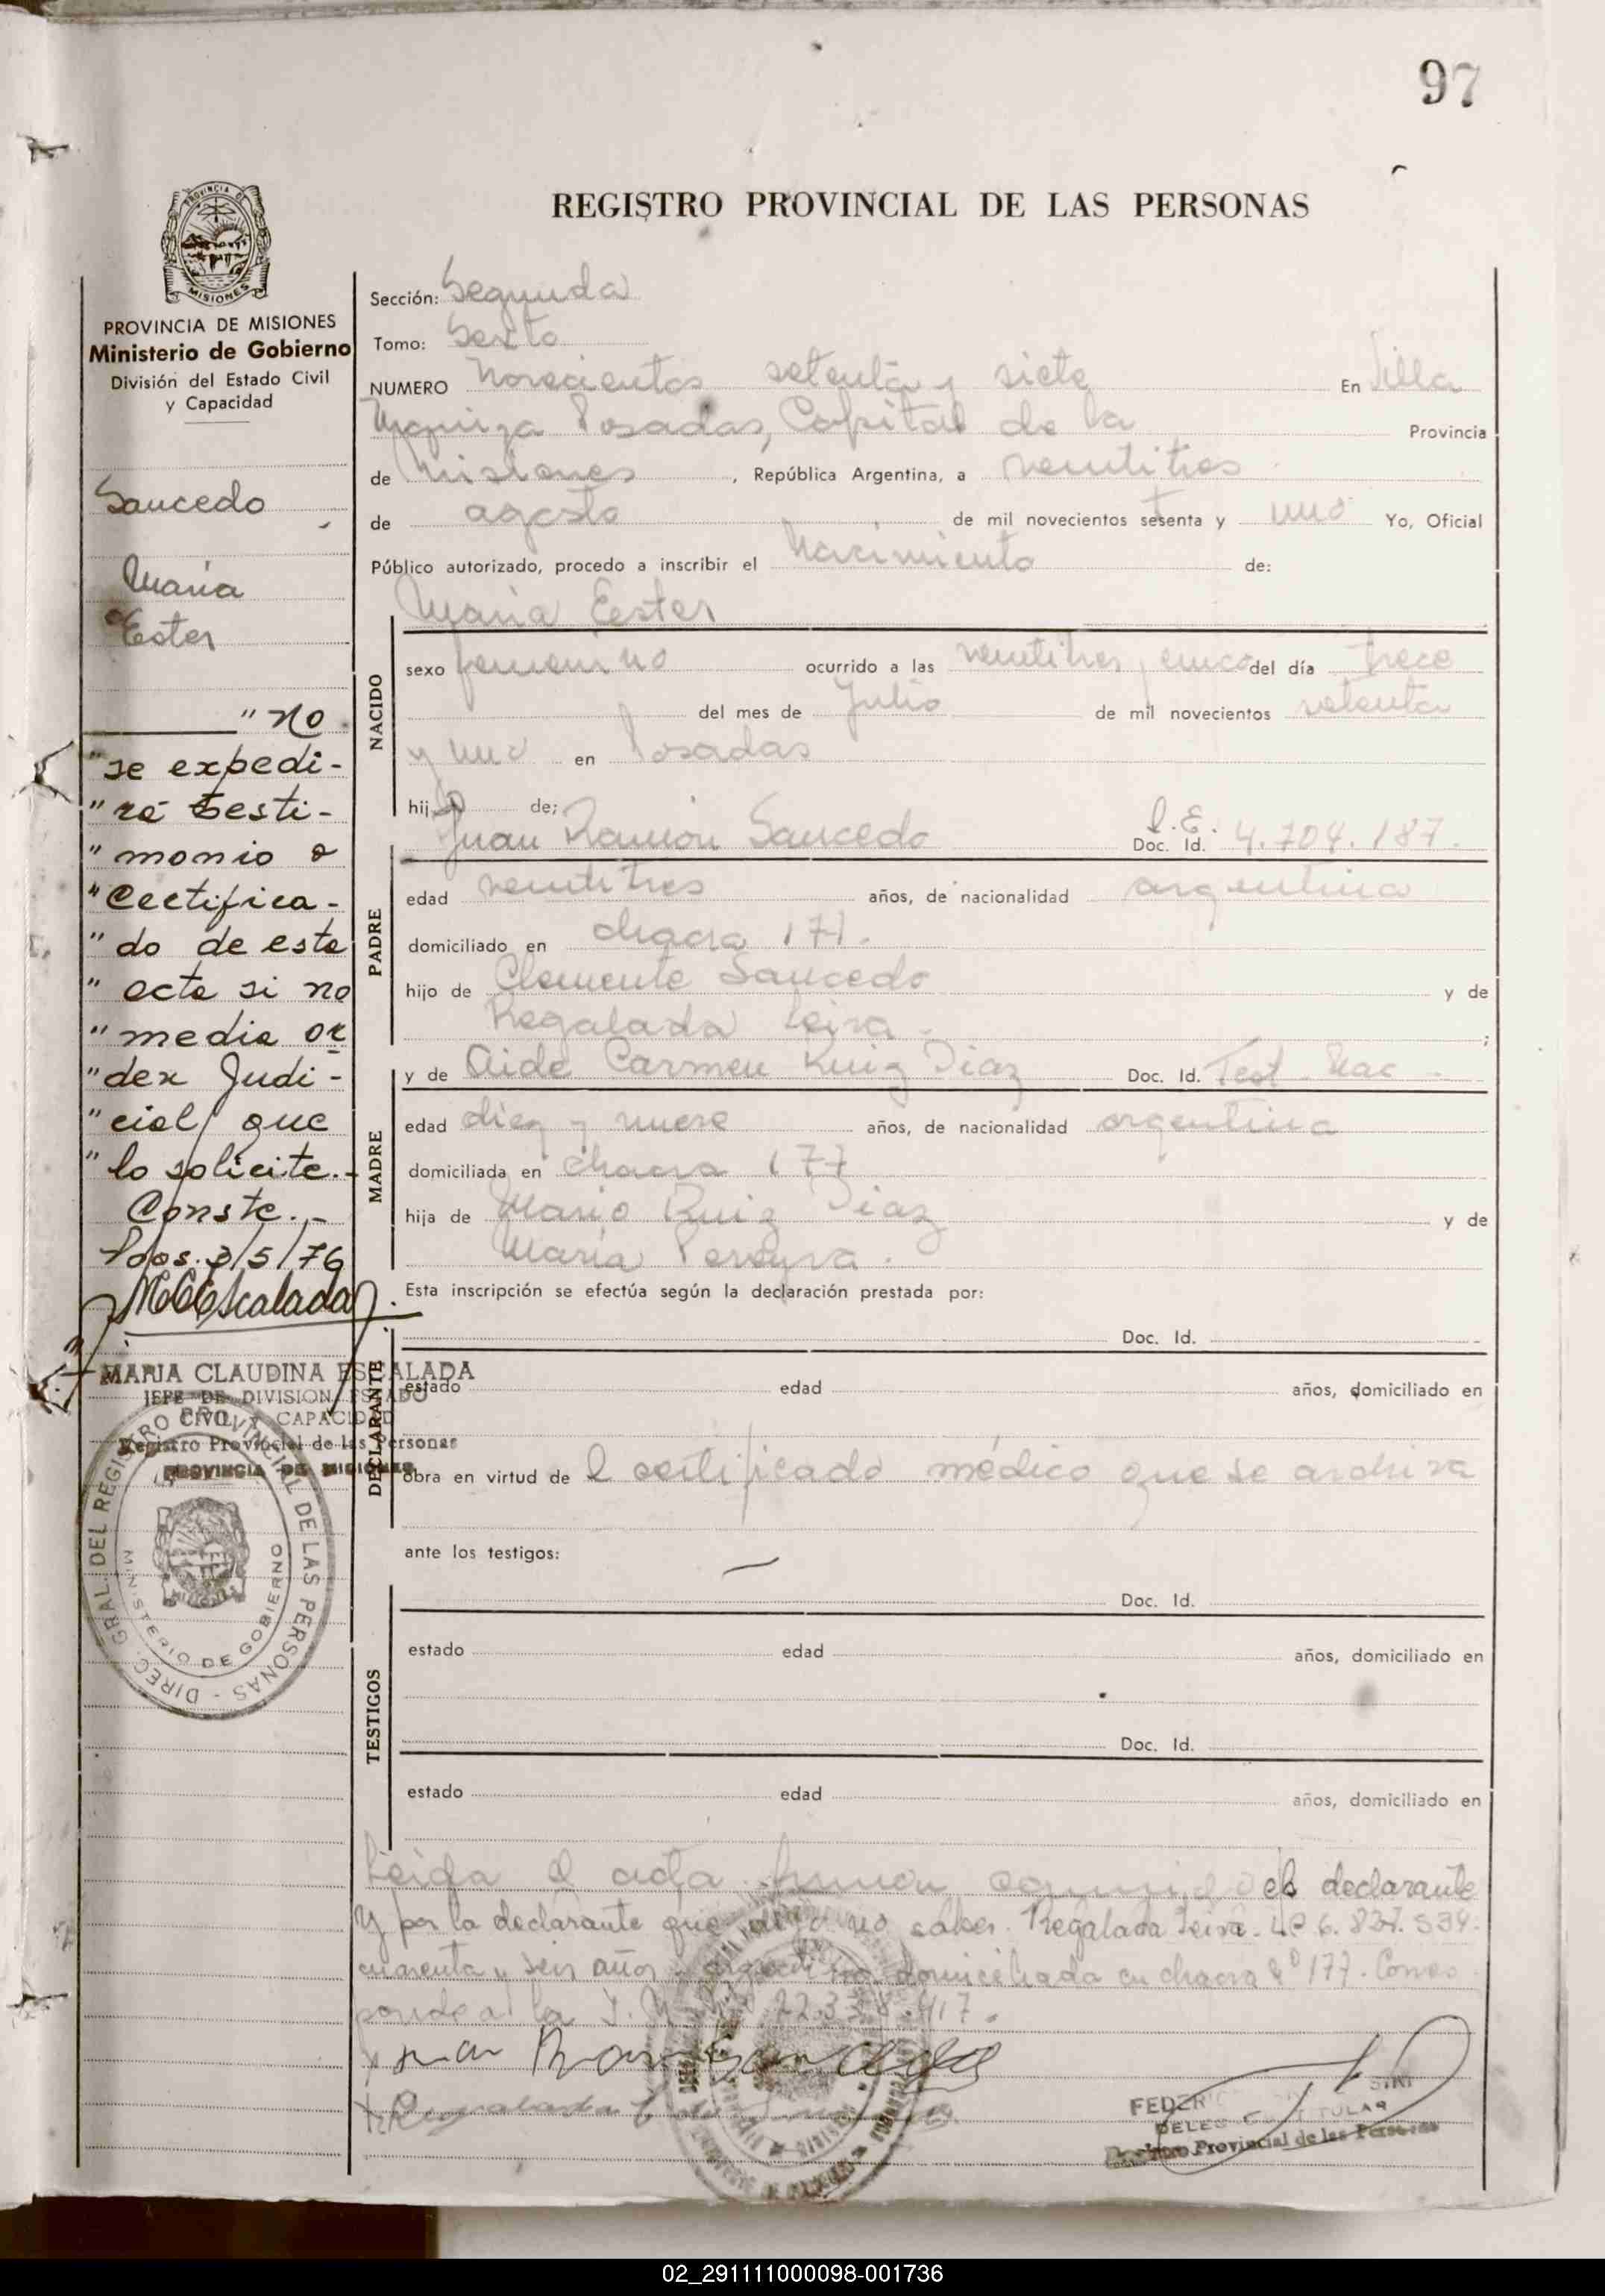 97
REGISTRO PROVINCIAL DE LAS PERSONAS
PROVINCIA DE
MISIONES
PROVINCIA DE MISIONES
Ministerio de Gobierno
División del Estado Civil
y Capacidad
Saucedo
María
Ester
"no
"se expedi-
"rá testi-
"monio o
"Certifica-
"do de esta
"acta si no
"media or
"den Judi-
"cial que
"lo solicite.-
Conste.-
Pdas. 3/5/76
MCEscalada
MARIA CLAUDINA ESCALADA
JEFE DE DIVISION ESTADO
CIVIL Y CAPACIDAD
Registro Provincial de las Personas
PROVINCIA DE MISIONES
DIREC. GRAL. DEL REGISTRO PROVINCIAL DE LAS PERSONAS -
MINISTERIO DE GOBIERNO
Sección: Segunda
Tomo: Sexto
NUMERO Novecientos setenta y siete En Villa
Urquiza Posadas, Capital de la Provincia
de Misiones, República Argentina, a veintitres
de agosto de mil novecientos sesenta y uno Yo, Oficial
Público autorizado, procedo a inscribir el Nacimiento de:
María Eester
NACIDO
sexo femenino ocurrido a las veintitres y cinco del día trece
del mes de Julio de mil novecientos setenta
y uno en Posadas
hija de;
Juan Ramon Saucedo L.E. Doc. Id. 4.704.187.
PADRE
edad veintitres años, de nacionalidad argentina
domiciliado en chacra 177.
hijo de Clemente Saucedo y de
Regalada Leiva. ;
y de Aide Carmen Ruiz Diaz Doc. Id. Test. Nac -
MADRE
edad diez y nueve años, de nacionalidad argentina
domiciliada en chacra 177
hija de Mario Ruiz Diaz y de
María Pereyra.
Esta inscripción se efectúa según la declaración prestada por:
Doc. Id.
DECLARANTE
estado edad años, domiciliado en
obra en virtud de l certificado médico que se archiva
ante los testigos:
Doc. Id.
TESTIGOS
estado edad años, domiciliado en
Doc. Id.
estado edad años, domiciliado en
Leida el acta firman conmigo el declarante
y por la declarante que dijo no saber. Regalada Leiva. LC 6.837.534.
cuarenta y seis años argentina domiciliada en chacra Nº 177. Corres
ponde a la 22.338.417.
Juan Ramon Saucedo
Regalada
FEDERICO
TITULAR
Registro Provincial de las Personas
02_291111000098-001736